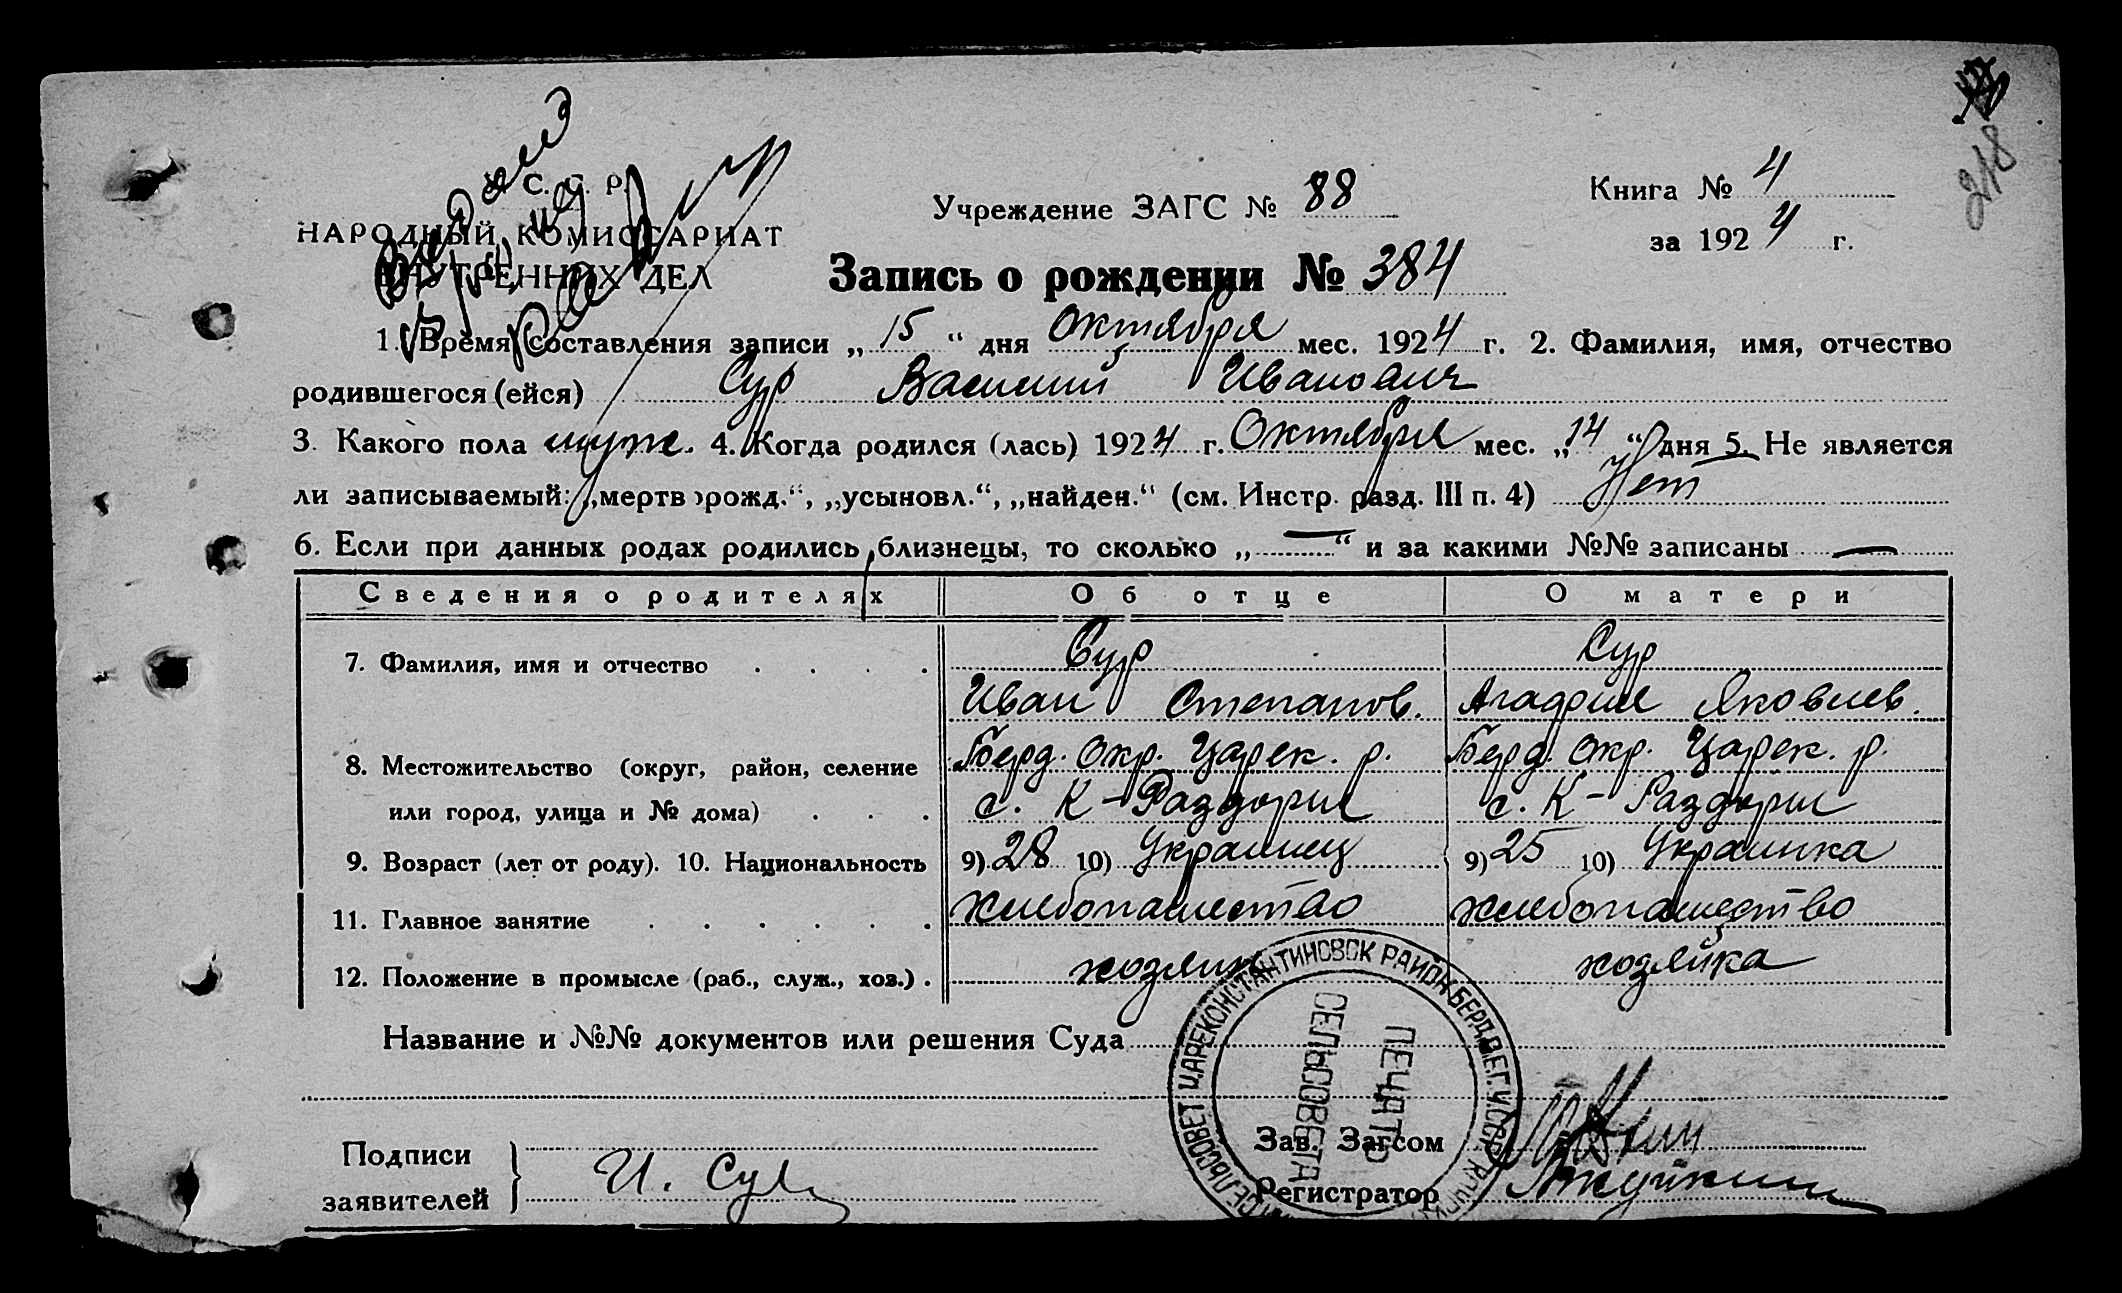 У С. С. Р.
НАРОДНЫЙ КОМИССАРИАТ
ВНУТРЕННИХ ДЕЛ
Учреждение ЗАГС № 88
Книга № 4
за 1924 г.
218
Запись о рождении № 384
1. Время составления записи „15“ дня Октября мес. 1924 г. 2. Фамилия, имя, отчество
родившегося (ейся) Сур Василий Иванович
3. Какого пола муж. 4. Когда родился (лась) 1924 г. Октября мес. „14“ дня 5. Не является
ли записываемый: „мертворожд.“, „усыновл.“, „найден.“ (см. Инстр. разд. III п. 4) Нет
6. Если при данных родах родились близнецы, то сколько „—“ и за какими №№ записаны —
Сведения о родителях Об отце О матери
7. Фамилия, имя и отчество . . . . Сур Сур
Иван Степанов. Агафия Яковлев.
8. Местожительство (округ, район, селение Берд. Окр. Царек. р. Берд. Окр. Царек. р.
или город, улица и № дома) . . . с. К-Раздоры с. К-Раздоры
9. Возраст (лет от роду). 10. Национальность 9) 28 10) Украинец 9) 25 10) Украинка
11. Главное занятие . . . . . . хлебопашество хлебопашество
12. Положение в промысле (раб., служ., хоз.) . хозяин хозяйка
Название и №№ документов или решения Суда
ЦАРЕКОНСТАНТИНОВСК РАЙОН БЕРД
СЕЛЬСОВЕТ
ПЕЧАТЬ
СЕЛЬСОВЕТА
Подписи
заявителей
И. Сур
Зав. Загсом
Регистратор